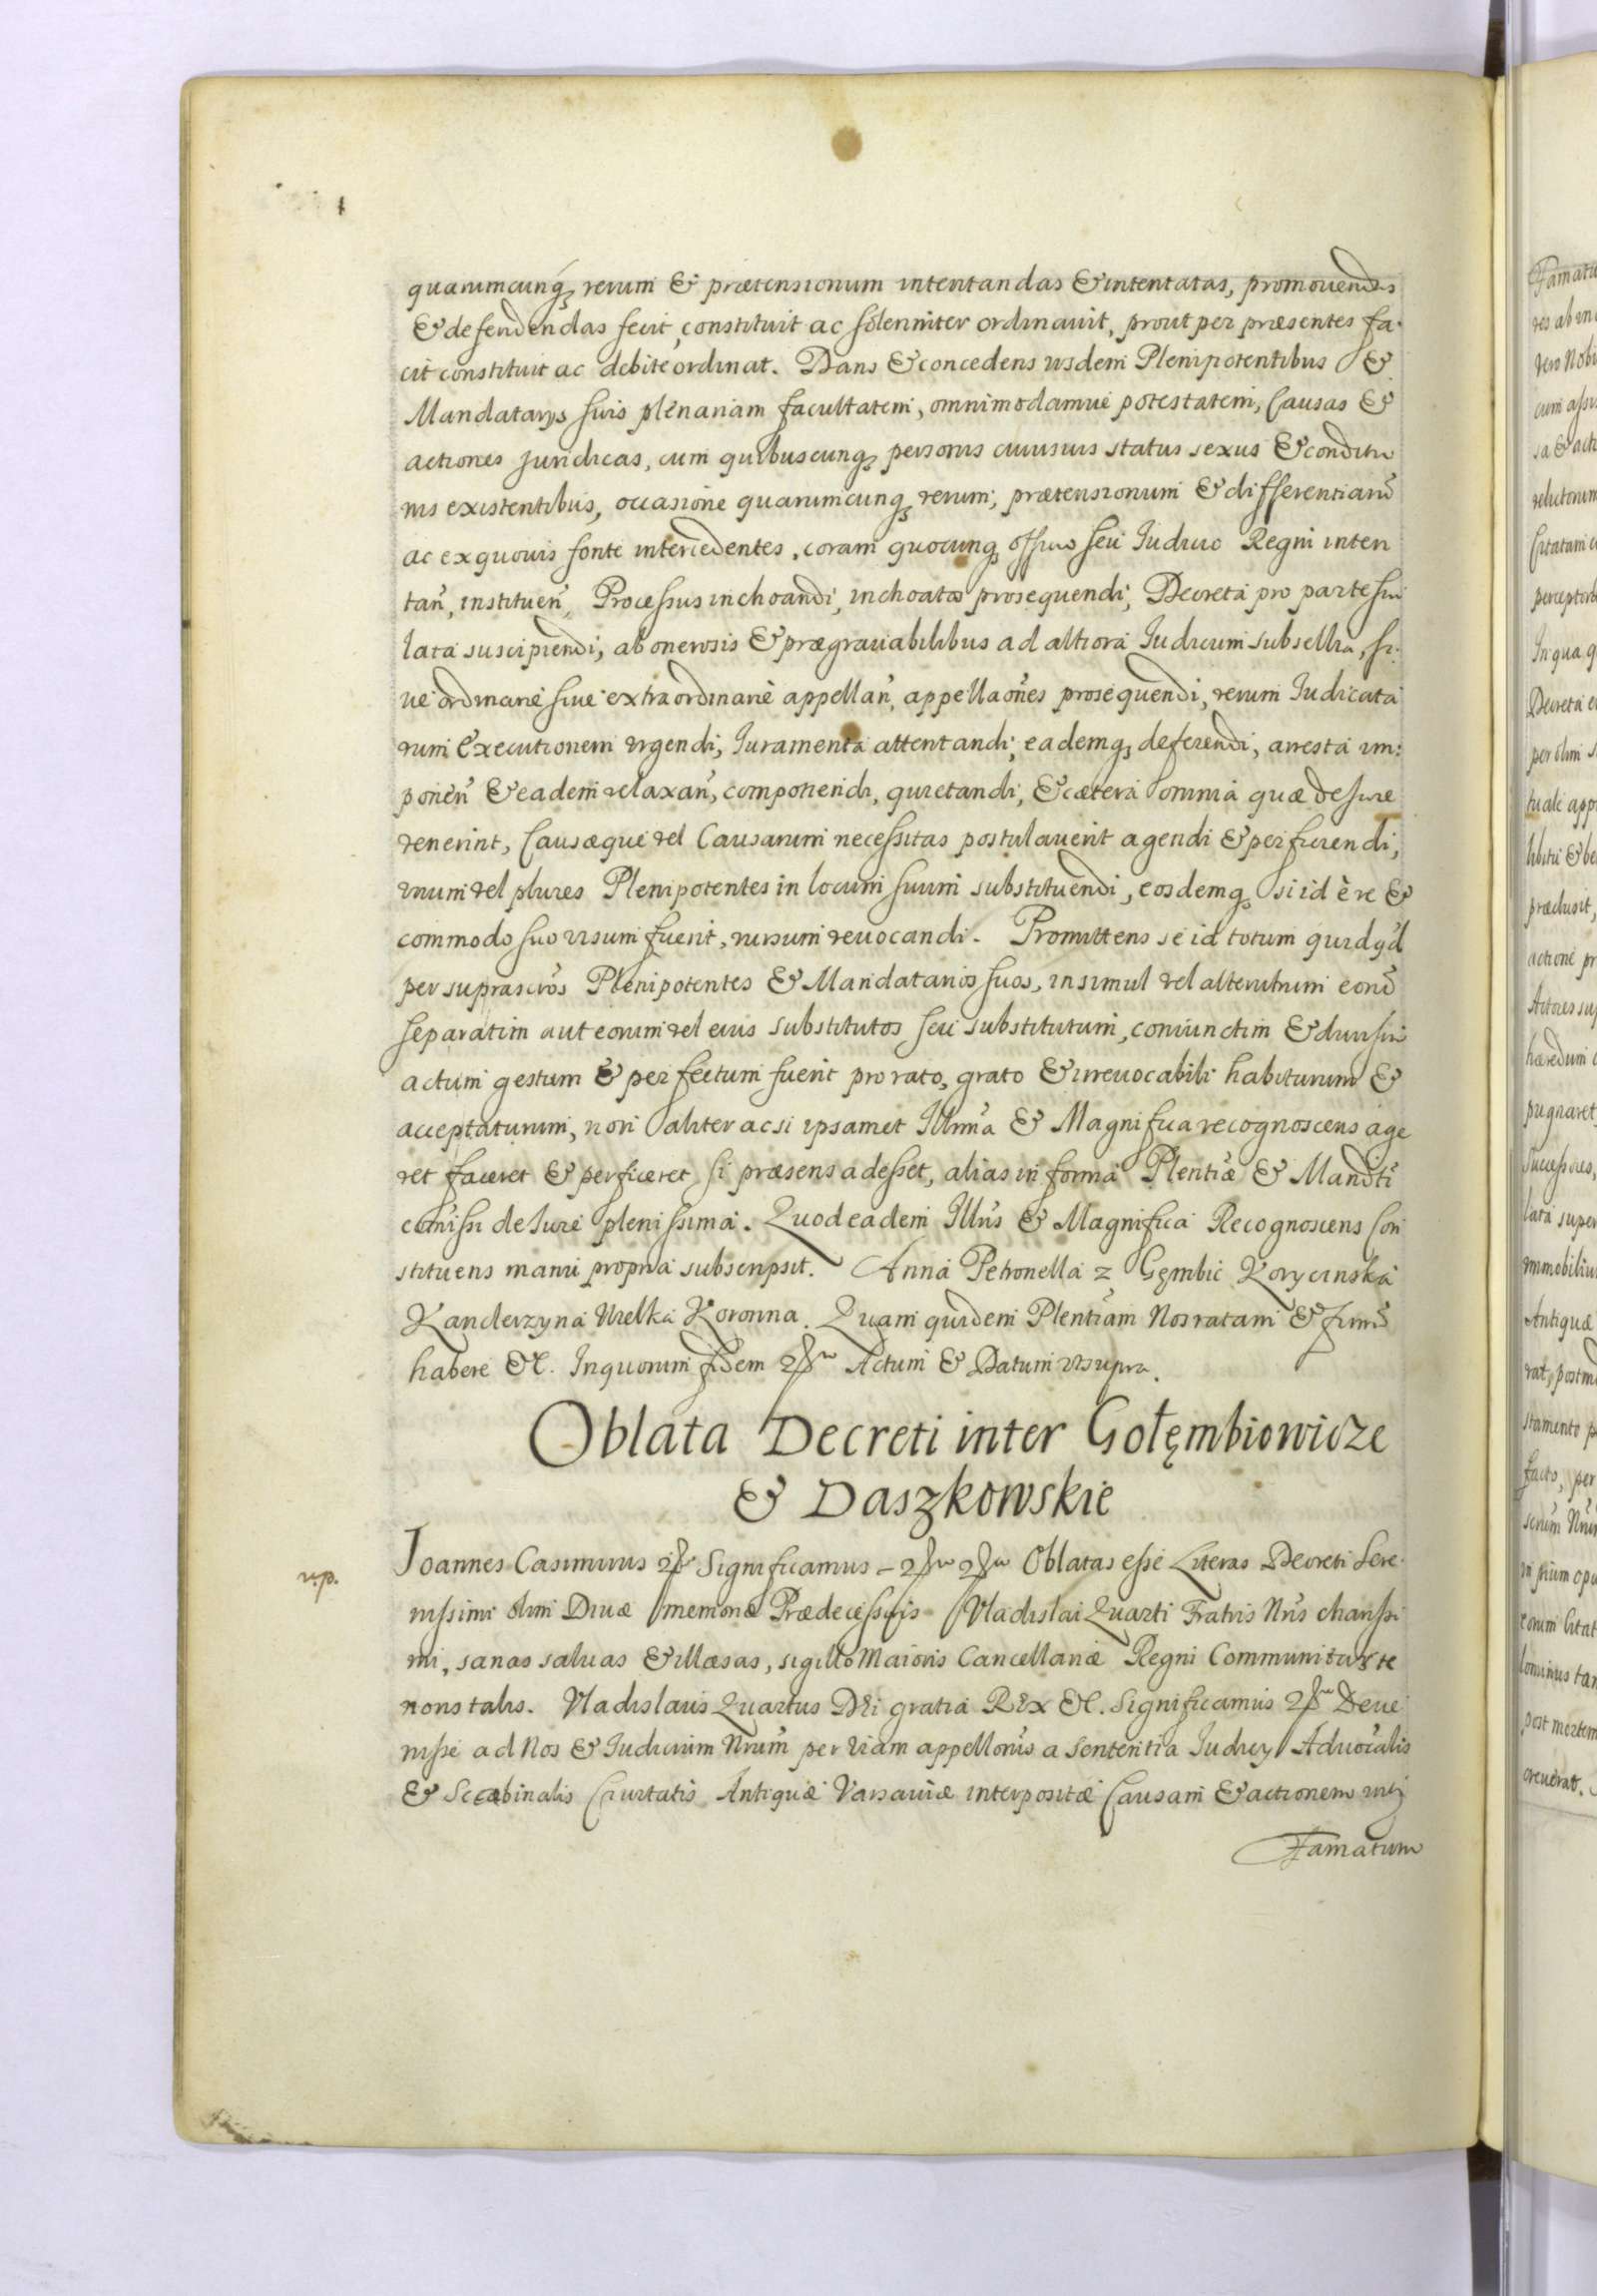 quarumcunq; rerum & prætensionum intentandas & intentatas, promouendas
& defendendas fecit, constituit ac solenniter ordinauit, prout per præsentes fa-
cit constituit ac debite ordinat. Dans & concedens iisdem Plenipotentibus &
Mandatarys suis plenariam facultatem, omnimodamue potestatem, Causas &
actiones juridicas, cum quibuscunq; personis cuiusuis status sexus & conditio
nis existentibus, occasione quarumcunq; rerum, prætensionum & differentiarũ
ac ex quouis fonte intercedentes, coram quocunq; officio seu Iudicio Regni inten
tañ, institueñ, Processus inchoandi, inchoatos prosequendi, Decreta pro parte sui
lata suscipiendi, ab onerosis & prægrauabilibus ad altiora Iudicum subsellia, si-
ue ordinarie siue extraordinarie appellañ, appellaones prosequendi, rerum Iudicata
rum Executionem vrgendi, Iuramenta attentandi, eademq; deferendi, arresta im-
poneñ & eadem relaxañ, componendi, quietandi, & cætera omnia quæ de Iure
venerint, Causæque vel Causarum necessitas postulauerit agendi & perficiendi,
vnum vel plures Plenipotentes in locum suum substituendi, eosdemq; si id è re &
commodo suo visum fuerit, rursum reuocandi. Promittens se id totum quidqd
per suprascros Plenipotentes & Mandatarios suos, insimul vel alterutrum eorũ
separatim aut eorum vel eius substitutos seu substitutum, coniunctim & diuisim
actum gestum & perfectum fuerit pro rato, grato & irreuocabili habiturum &
acceptaturum, non aliter ac si ipsamet Illma & Magnifica recognoscens age
ret faceret & perficeret si præsens adesset, alias in forma Plentiæ & Mandti
comissi de Iure plenissima. Quod eadem Illris & Magnifica Recognoscens Con
stituens manu propria subscripsit. Anna Petronella z Gęmbic Korycinska
Kanclerzyna Wielka Koronna. Quam quidem Plentiam Nos ratam & firmã
habere &c. In quorum fidem Actum & Datum vt supra.
Oblata Decreti inter Gołęmbiowicze
& Daszkowskie
v.p.
Ioannes Casimirus Significamus Oblatas esse Literas Decreti Sere-
nissimi olim Diuæ memoriæ Prædecessoris Vladislai Quarti Fratris Nris charissi
mi, sanas saluas & illæsas, sigillo Maioris Cancellariæ Regni Communitas te
noris talis. Vladislaus Quartus Dei gratia Rex &c. Significamus Deue
nisse ad Nos & Iudicium Nrum per viam appellonis a sententia Iudicy Aduocalis
& Scabinalis Ciuitatis Antiquæ Varsauiæ interpositæ Causam & actionem intr
Famatum